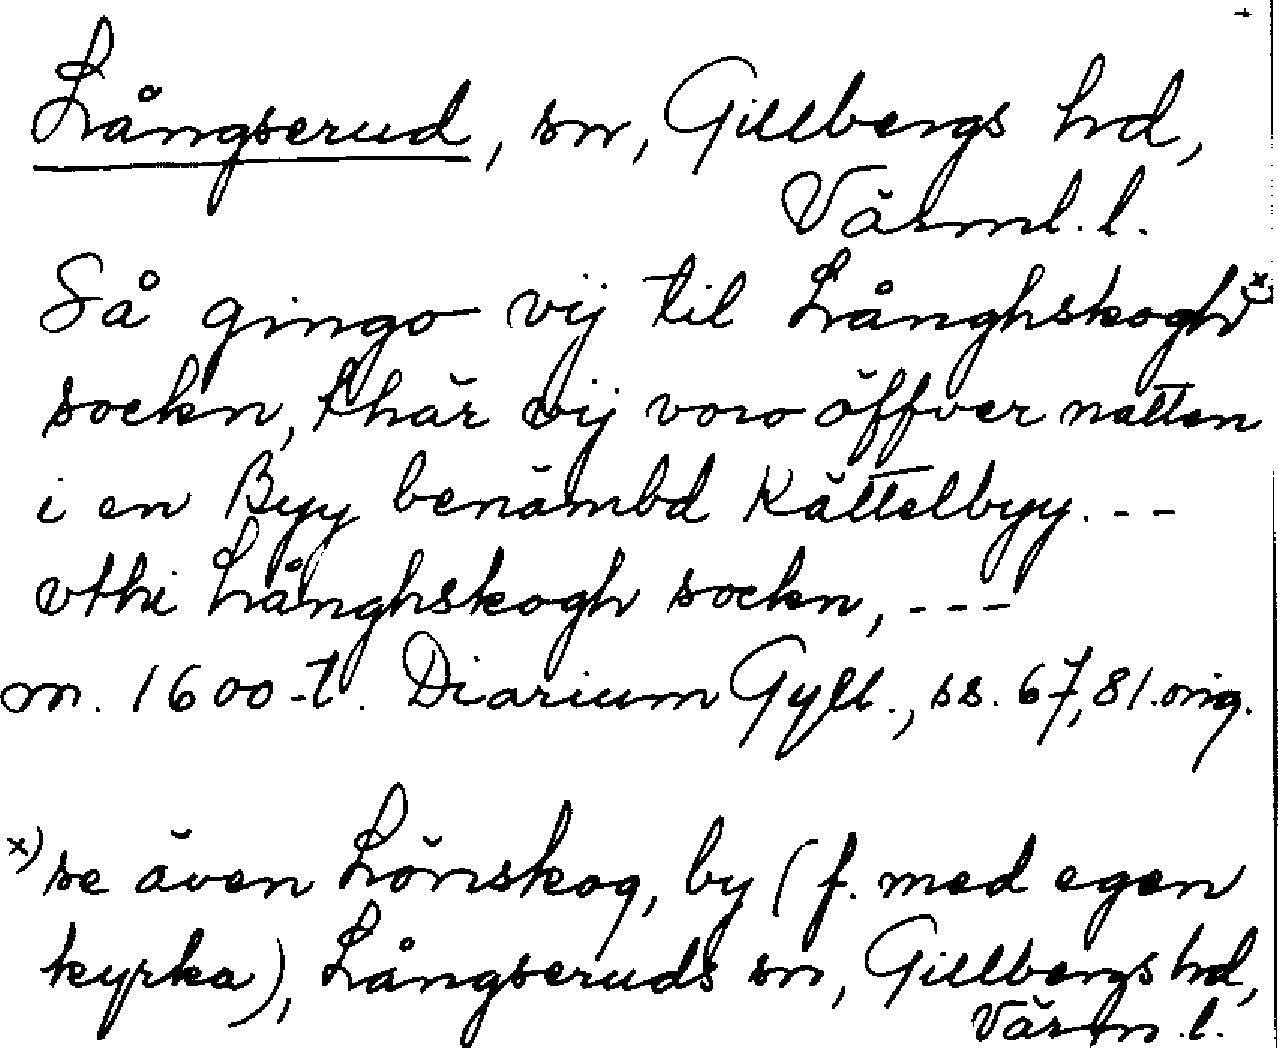 Långserud, sn, Gillbergs hd,
Värml. l.
Så gingo vij til Långhskogh x)
sockn, thär vij voro öffver natten
i en Byy benämbd Kättelbyy. ---
vthi Långhskogh sockn, ---
m. 1600-t. Diarium Gyll., ss. 67, 81. orig.
x) se även Lönskog, by (f. med egen
kyrka), Långseruds sn, Gillbergs hd,
Värm. l.